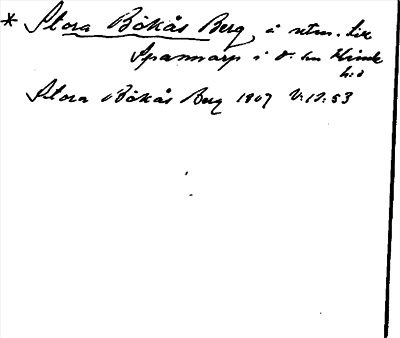 * Stora Bökås Berg, å utm. till
Spannarp i s.
Stora Bökås Berg 1907 V:12:53